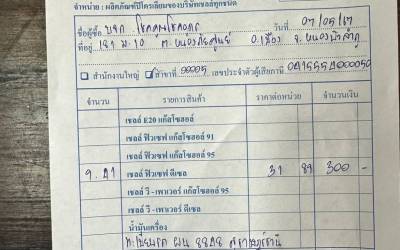 จำหน่าย : ผลิตภัณฑ์ปิโตรเลียมของบริษัทเชลล์ทุกชนิด
ชื่อผู้ซื้อ บจก. วันที่ 07/05/67
ที่อยู่ 181 ม.10 ต. หนองภัยศูนย์ อ.เมือง จ.หนองบัวลำภู
สำนักงานใหญ่ สาขาที่ 00005 เลขประจำตัวผู้เสียภาษี
จำนวน รายการสินค้า ราคาต่อหน่วย จำนวนเงิน
เชลล์ E20 แก๊สโซฮอล์
เชลล์ ฟิวเซฟ แก๊สโซฮอล์ 91
เชลล์ ฟิวเซฟ แก๊สโซฮอล์ 95
9.41 เชลล์ ฟิวเซฟ ดีเซล 31 89 300 -
เชลล์ วี - เพาเวอร์ แก๊สโซฮอล์ 95
เชลล์ วี - เพาเวอร์ ดีเซล
น้ำมันเครื่อง
ทะเบียนรถ ผน 8848 สุราษฎร์ธานี